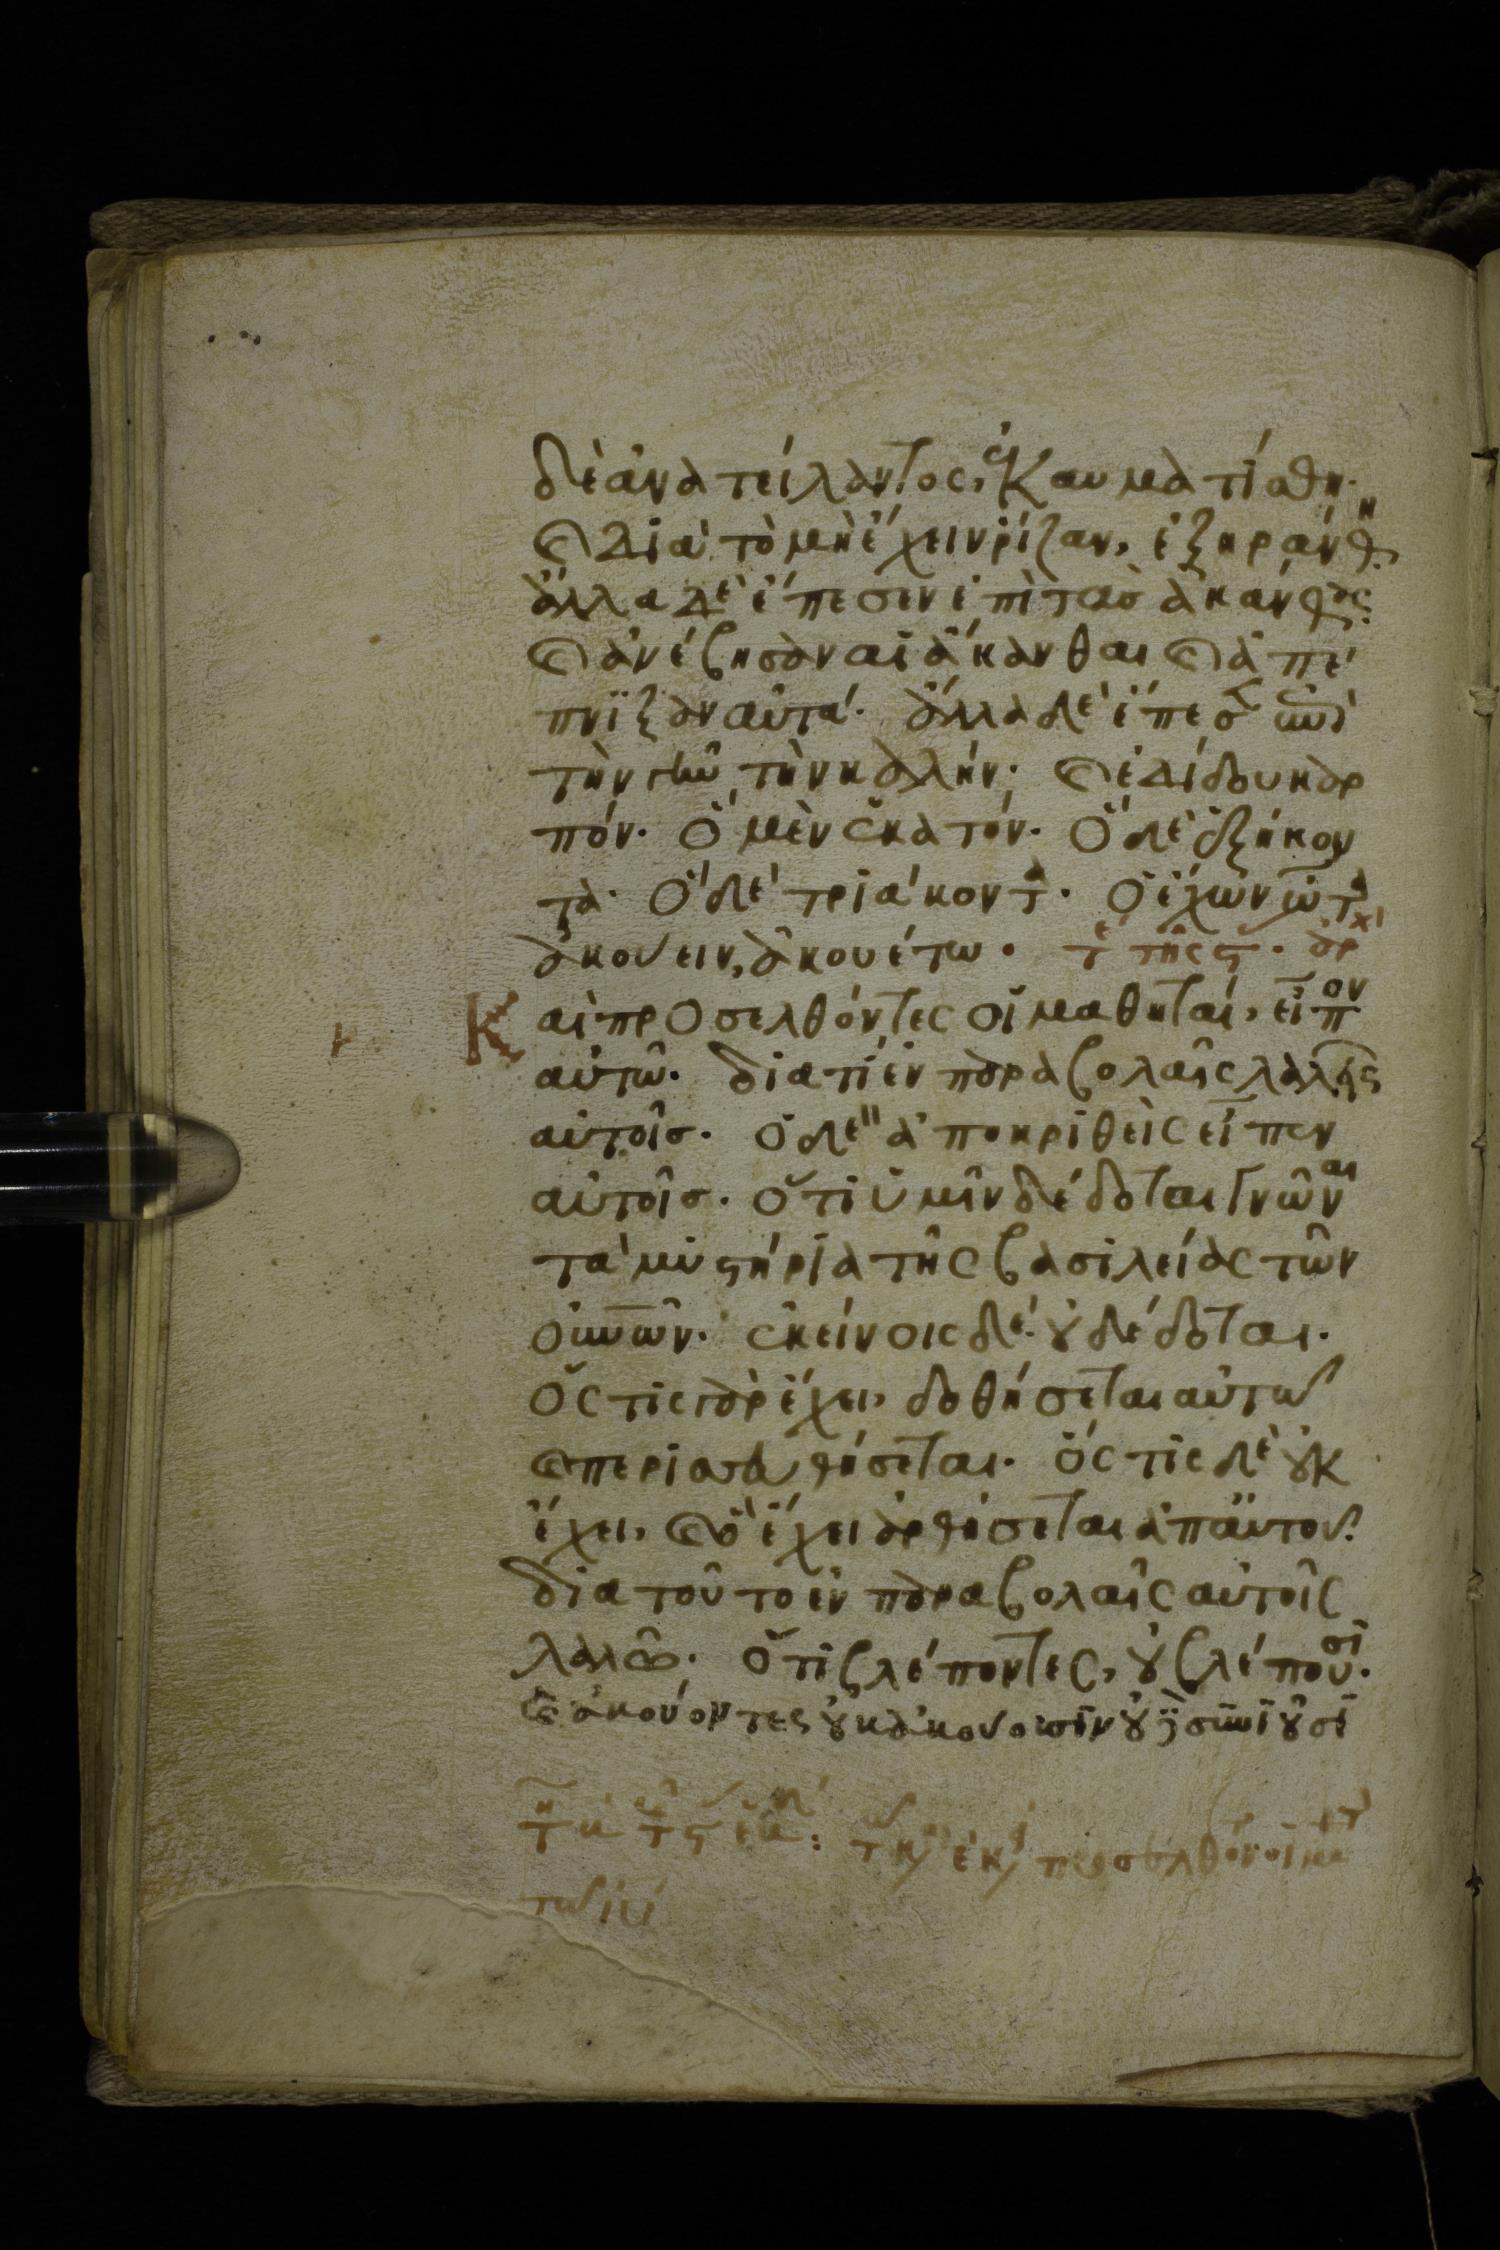 δὲ ἀνατείλαντος, ἐκαυματίσθη·
καὶ διὰ τὸ μὴ ἔχειν ῥίζαν, ἐξηράνθη.
ἄλλα δὲ ἔπεσεν ἐπὶ τὰσ ἀκάνθας.
καὶ ἀνέβησαν αἱ ἄκανθαι καὶ ἀπέ
πνιξαν αὐτά. ἄλλα δὲ ἔπεσεν ἐπὶ
τὴν γῆν τὴν καλήν. καὶ ἐδίδου καρ
πόν. ὃ μὲν ἑκατόν. ὃ δὲ ἑξήκον
τα. ὃ δὲ τριάκοντα. ὁ ἔχων ὦτα
ἀκούειν, ἀκουέτω. τε τῆς ϛ. ἀρχ
Καὶ προσελθόντες οἱ μαθηταί, εἶπον
αὐτῶ. διατί ἐν παραβολαῖς λαλεῖς
αὐτοῖσ. ὁ δὲ ἀποκριθεὶς εἶπεν
αὐτοῖσ. ὅτι ὑμῖν δέδοται γνῶναι
τὰ μυστήρια τῆς βασιλείας τῶν
οὐνῶν. ἐκείνοις δὲ οὐ δέδοται.
ὅςτις γὰρ ἔχει, δοθήσεται αὐτῶ
καὶ περισσευθήσεται. ὅςτις δὲ οὐκ
ἔχει, καὶ ὃ ἔχει ἀρθήσεται ἀπ αὐτοῦ.
διὰ τοῦτο ἐν παραβολαῖς αὐτοῖς
λαλῶ. ὅτι βλέποντες, οὐ βλέπουσι.
καὶ ἀκούοντες οὐκ ἀκούουσιν οὐδὲ συνιοῦσι